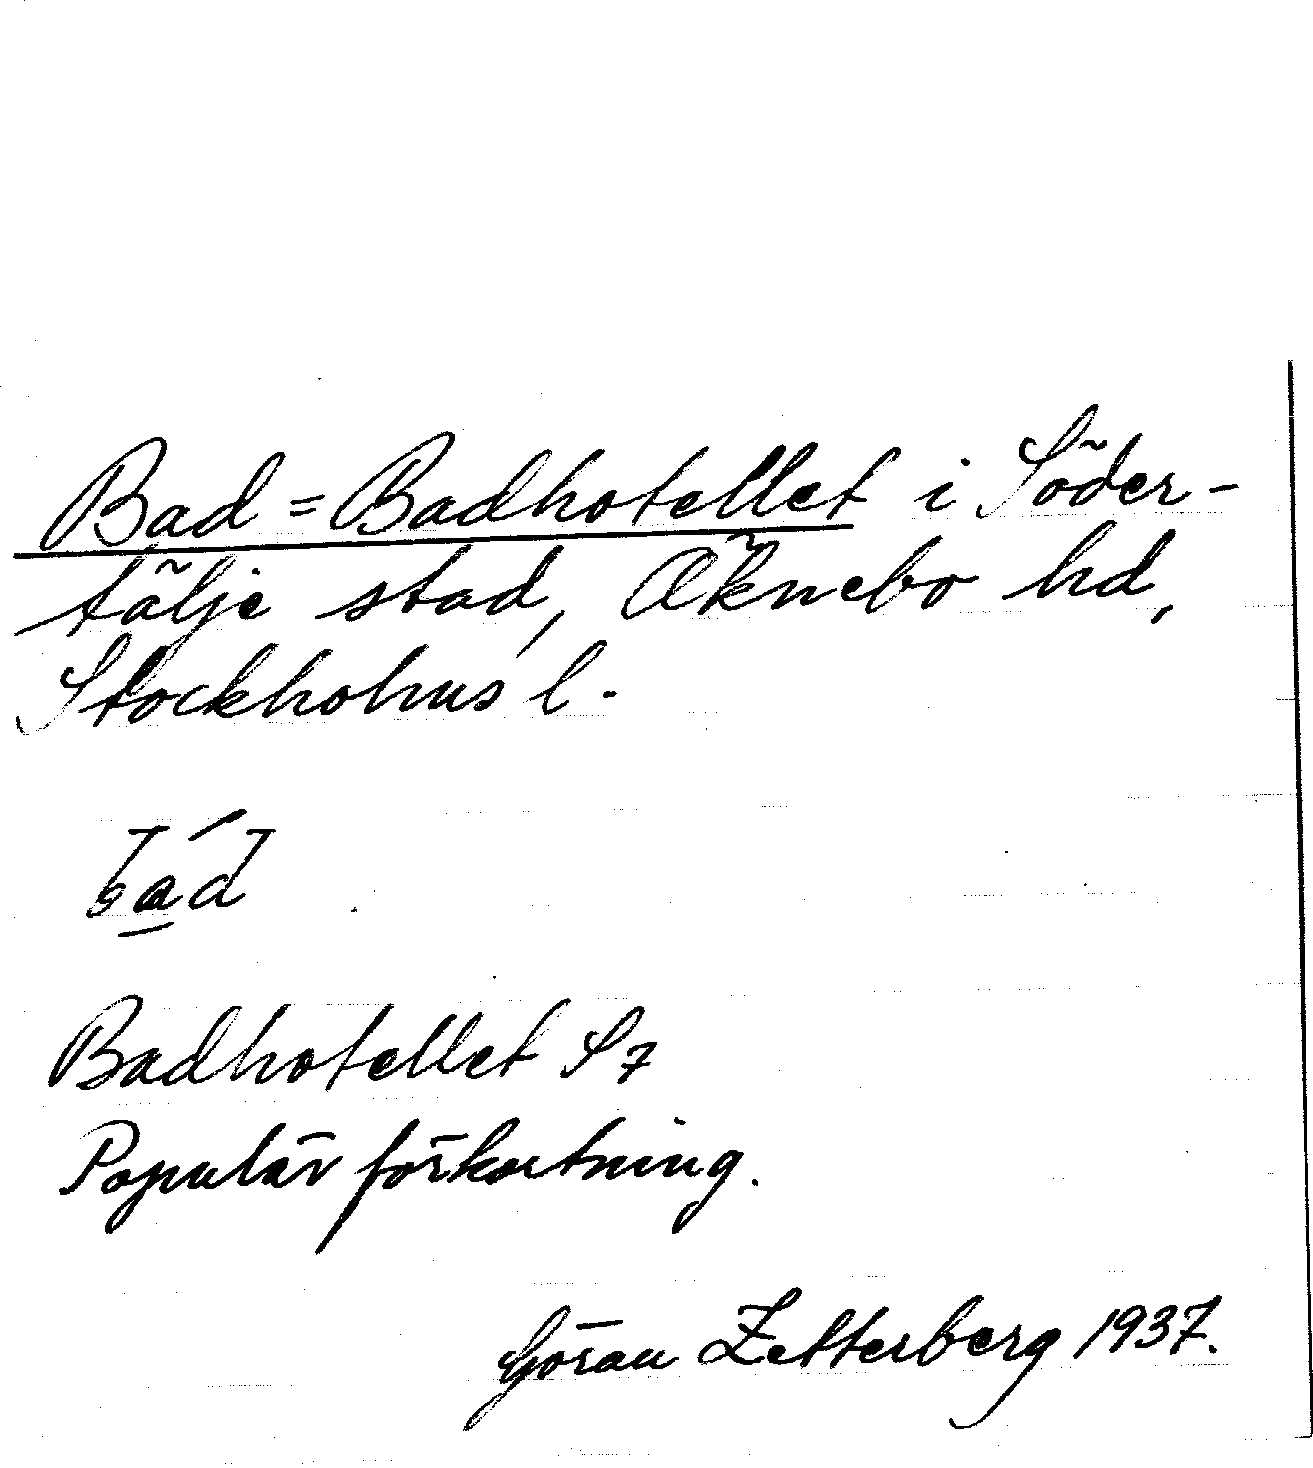 Bad = Badhotellet i Söder-
tälje stad, Öknebo hd,
Stockholms l.
bád
Badhotellet S7
Populär förkortning.
Göran Zetterberg 1937.